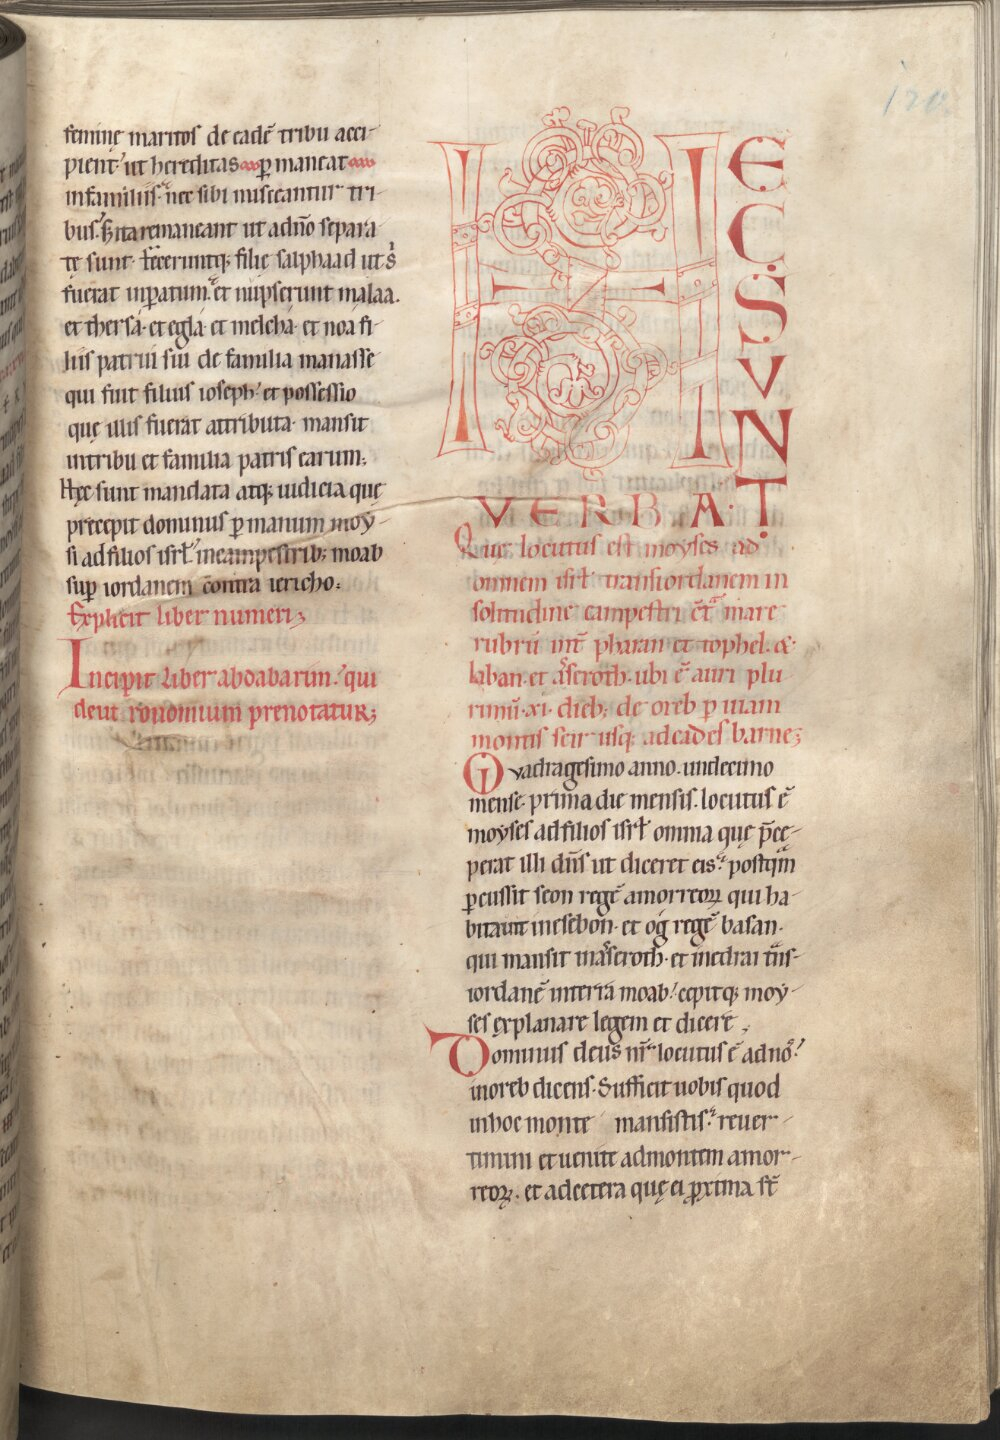 feminę maritos de eadē tribu acci-
pient ut hereditas p̱maneat
in familiis· nec sibi misceantur tri-
bus. S; ita remaneant ut a dn̄o separa-
tę sunt. feceruntq; filię salphaad ut
fuerat inp̱atum. et nupserunt malaa.
et thersa· et egla· et melcha· et noa fi-
liis patrui sui de familia manasse
qui fuit filius ioseph· et possessio
quę illis fuerat attributa· mansit
in tribu et familia patris earum;
Hęc sunt mandata atq; iudicia quę
pręcepit dominus p̱ manum moy-
si ad filios isrł in campestrib; moab
sup̱ iordanem c̄ontra iericho;
Explicit liber numeri;
Incipit liber aboabarim· qui
deut ronomium prenotatur;
120
HEC SUNT
VERBA·
Quę locutus est moyses ad
omnem isrł trans iordanem in
solitudine campestri ct̄ mare
rubrū int̄ pharan et tophel· &
laban· et aseroth· ubi ē auri plu
rimū· xi· dieb; de oreb p̱ uiam
montis seir usq; ad cades barne;
Quadragesimo anno· undecimo
mense· prima die mensis· locutus ē
moyses ad filios isrł omnia quę p̄cę-
perat illi dn̄s ut diceret eis· postq̄m
p̱cussit seon regē amorreoꝝ qui ha-
bitauit in esebon· et og regē basan·
qui mansit in aseroth· et in edrai tn̄s-
iordanē in terra moab· cepitq; moy-
ses explanare legem et dicere;
Dominus deus nr̄ locutus ē ad nos
in oreb dicens· Sufficit uobis quod
in hoc monte mansistis· reuer-
timini et uenite ad montem amor-
reoꝝ· et ad cetera quę ei ꝓxima st̄